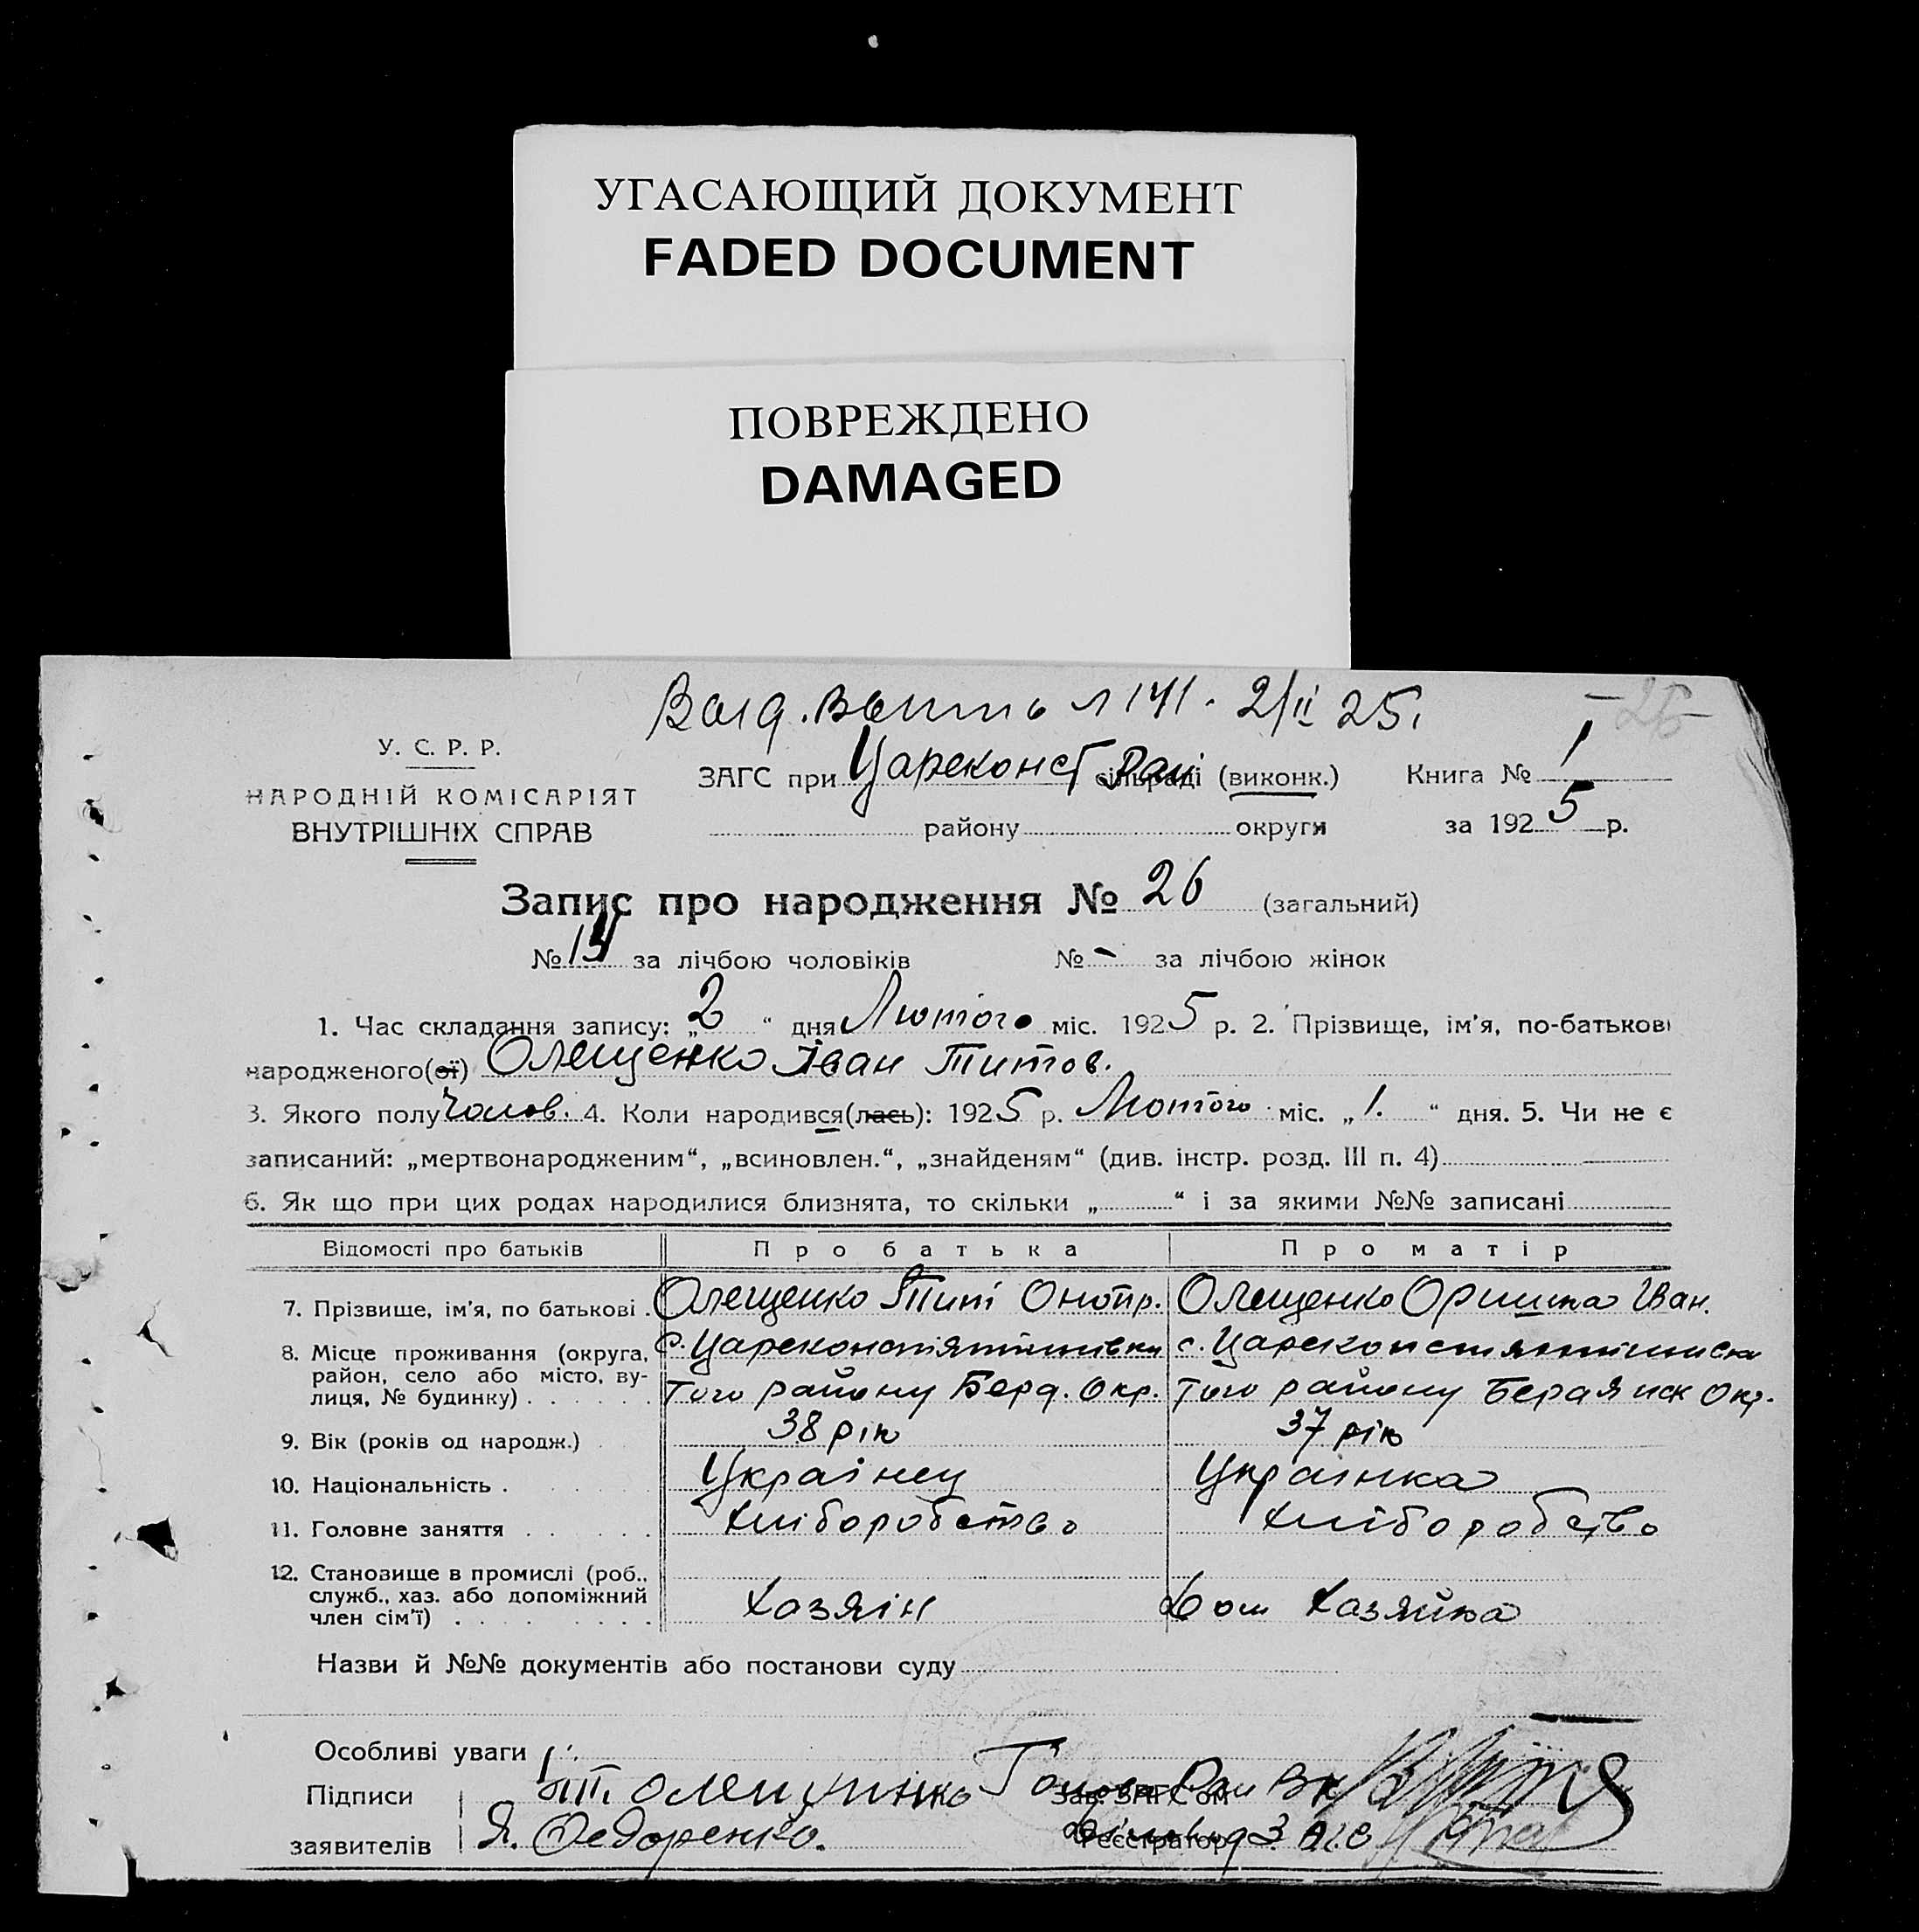 УГАСАЮЩИЙ ДОКУМЕНТ
FADED DOCUMENT
ПОВРЕЖДЕНО
DAMAGED
141. 2/II 25.
У. С. Р. Р.
НАРОДНІЙ КОМІСАРІЯТ
ВНУТРІШНІХ СПРАВ
ЗАГС при Цареконст Рай сільраді (виконк.) Книга № 1
району округи за 1925 р.
Запис про народження № 26 (загальний)
№ за лічбою чоловіків № - за лічбою жінок
1. Час складання запису: „2“ дня Лютого міс. 1925 р. 2. Прізвище, ім'я, по-батькові
народженого(ої) Олещенко Іван Титов.
3. Якого полу Чолов. 4. Коли народився(лась): 1925 р. Лютого міс. „1.“ дня. 5. Чи не є
записаний: „мертвонародженим“, „всиновлен.“, „знайденям“ (див. інстр. розд. III п. 4)
6. Як що при цих родах народилися близнята, то скільки „ “ і за якими №№ записані
Відомості про батьків Про батька Про матір
7. Прізвище, ім'я, по батькові . Олещенко Тит Онопр. Олещенко Оришка Іван.
8. Місце проживання (округа, с. Цареконстянтинівки с. Цареконстянтинівки
район, село або місто, ву-
лиця, № будинку) . . . . . . Того району Берд. Окр. Того району Бердянск Окр.
9. Вік (років од народж.) 38 рік 37 рік
10. Національність . Українец Українка
11. Головне заняття . . . . . Хліборобство Хліборобство
12. Становище в промислі (роб.,
служб., хаз. або допоміжний
член сім'ї) . . . . . . . Хазяін Дом Хазяйка
Назви й №№ документів або постанови суду
Особливі уваги
Підписи Т. Олещинко Голова Рай Вк Зав. ЗАГС'ом
заявителів Я. Федоренко. Реєстратор